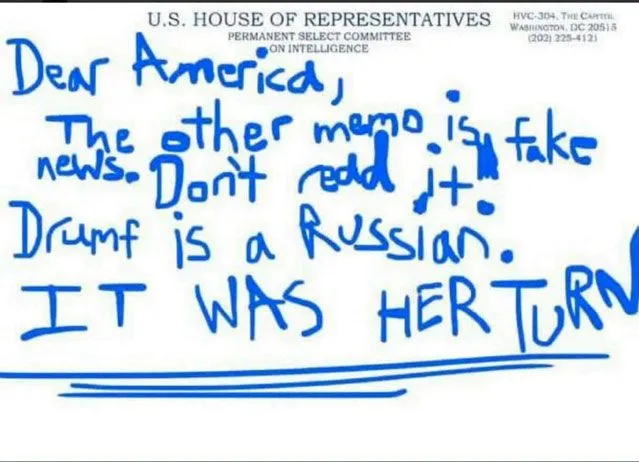 U.S. HOUSE OF REPRESENTATIVES
PERMANENT SELECT COMMITTEE
ON INTELLIGENCE
HVC-304, THE CAPITOL
WASHINGTON, DC 20515
(202) 225-4121
Dear America,
The other memo is fake
news. Don't read it.
Drumf is a Russian.
IT WAS HER TURN